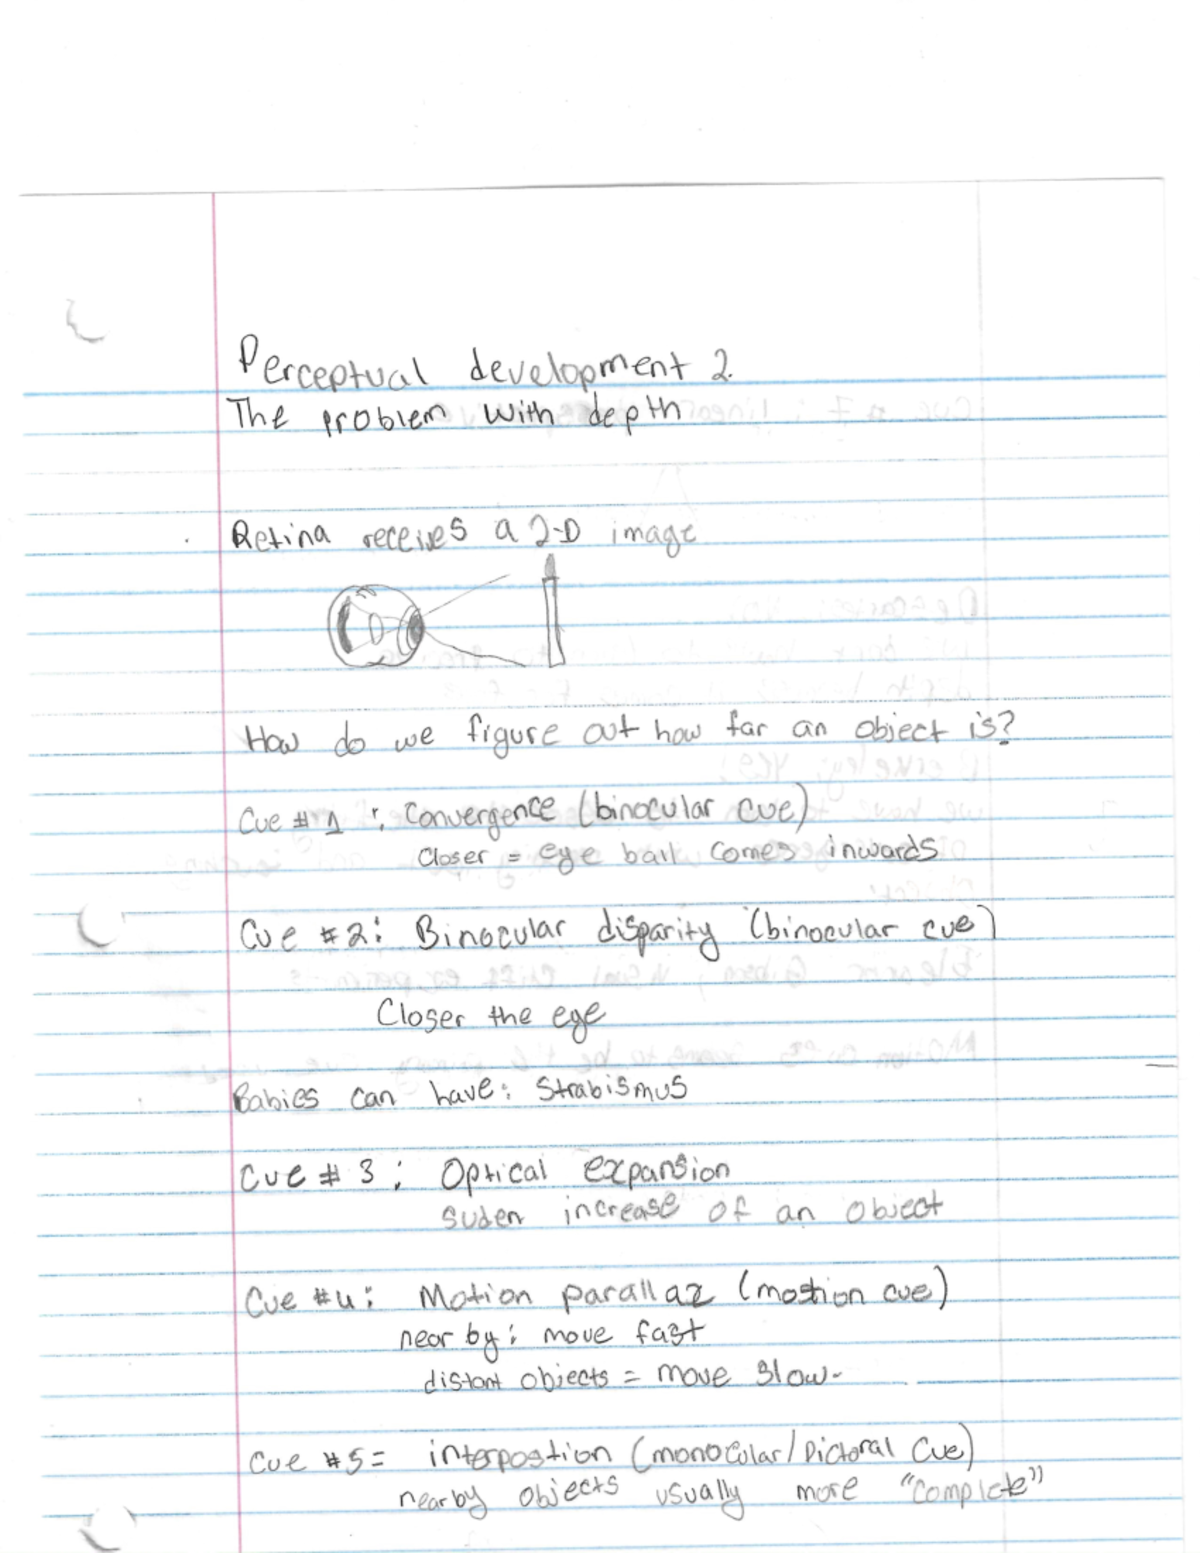 Perceptual development 2.
The problem with depth
Retina receives a 2-D image
How do we figure out how far an object is?
Cue # 1 : Convergence (binocular cue)
closer = eye ball comes inwards
Cue #2: Binocular disparity (binocular cue)
Closer the eye
Babies can have: Strabismus
Cue # 3 : Optical expansion
suden increase of an object
Cue #4: Motion parallax (mostion cue)
near by: move fast
distant objects = move slow-
Cue #5= interpostion (monocular/Pictoral Cue)
nearby objects usually more "complete"